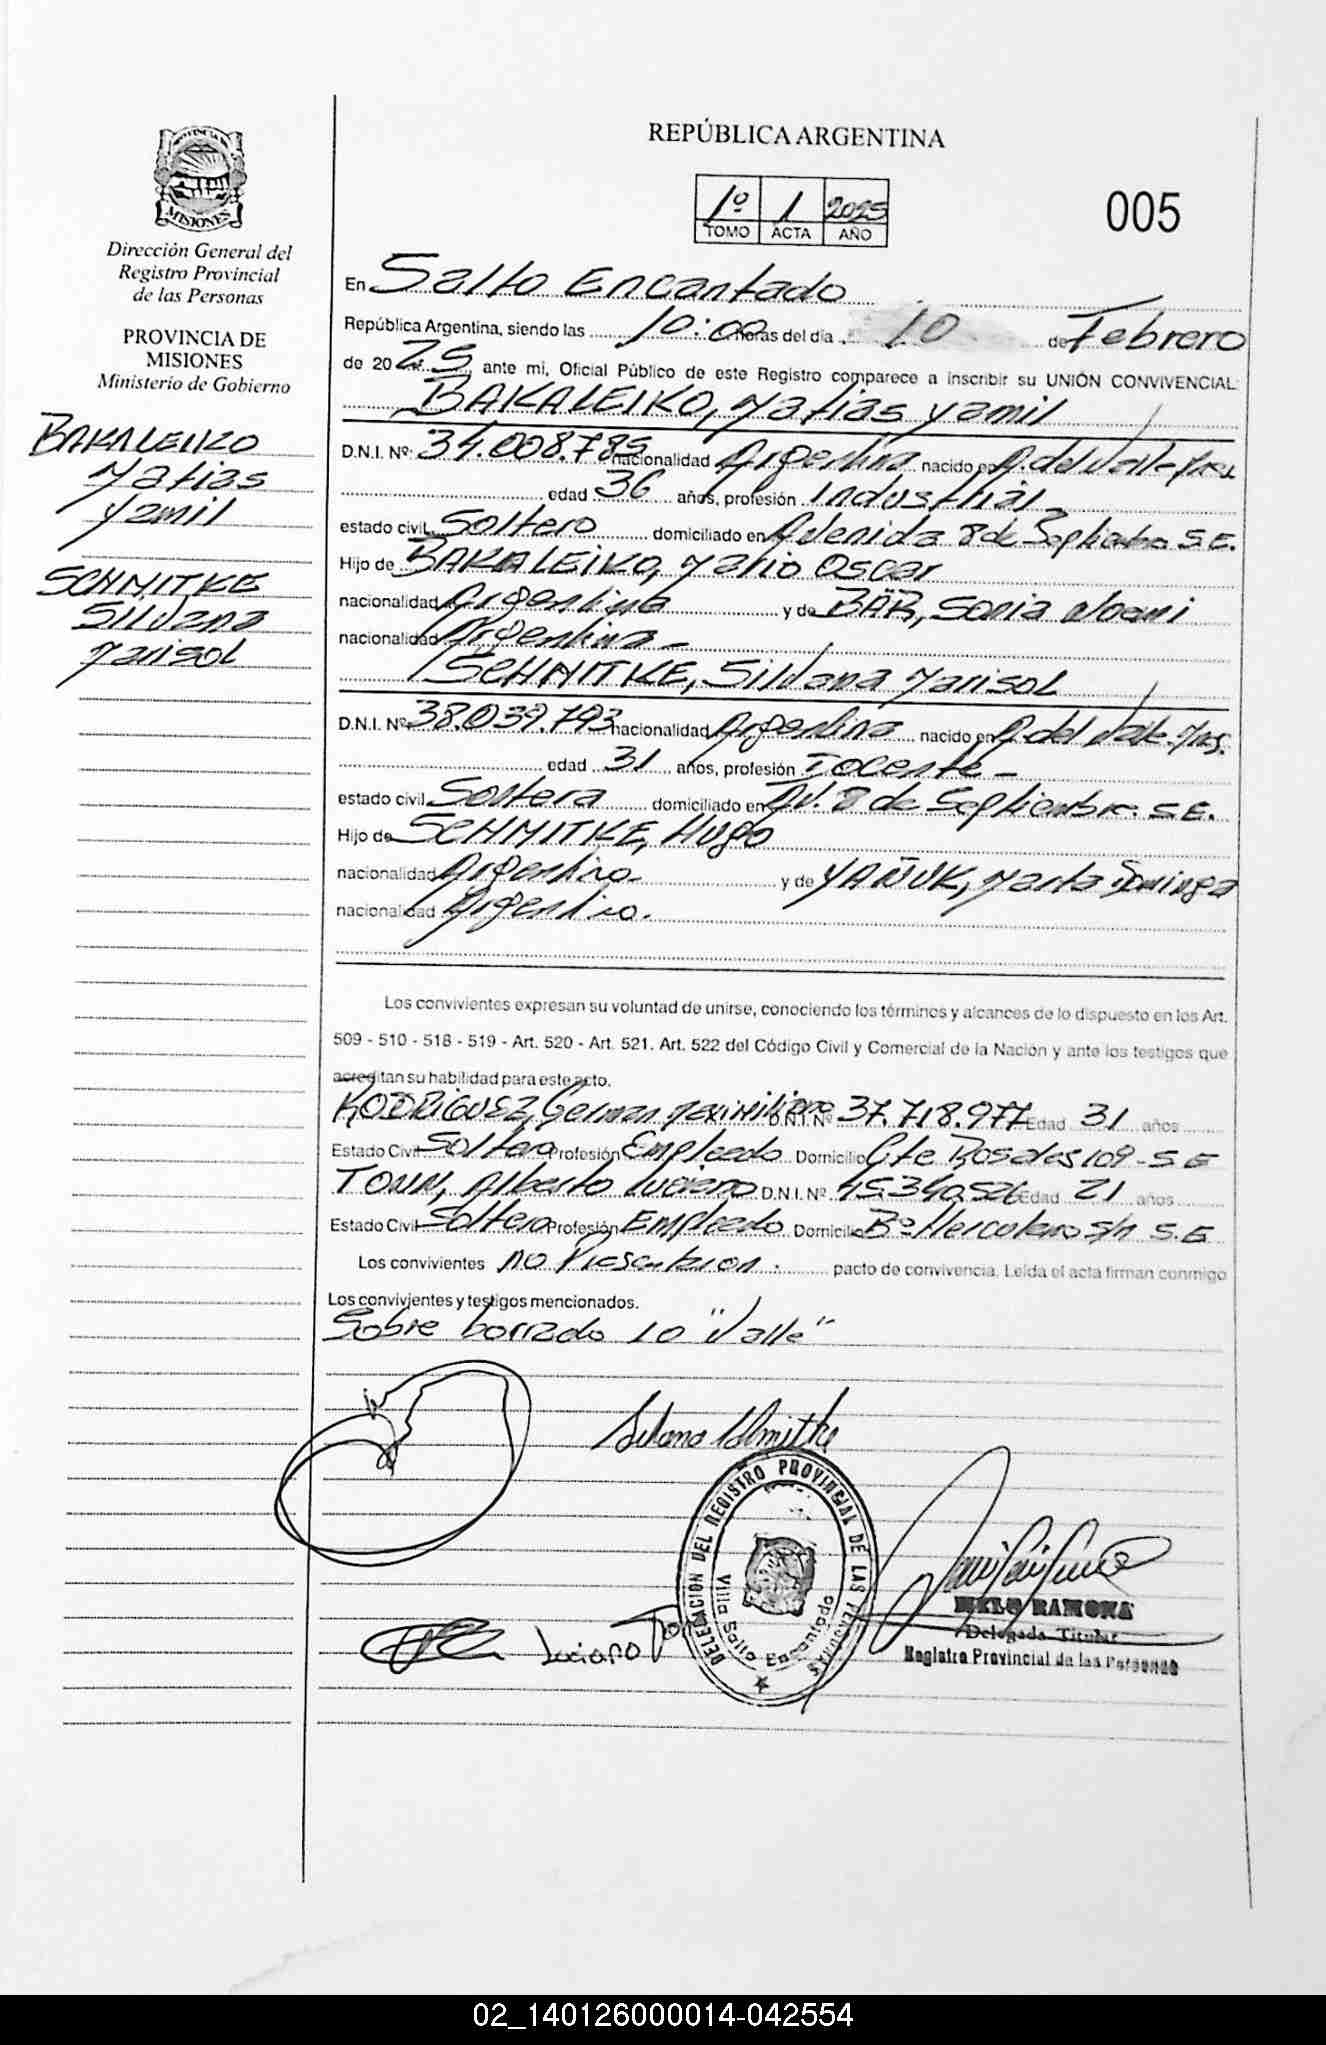 REPÚBLICA ARGENTINA
1º 1 2025
TOMO ACTA AÑO
005
PROVINCIA DE
MISIONES
Dirección General del
Registro Provincial
de las Personas
PROVINCIA DE
MISIONES
Ministerio de Gobierno
BAKALEIKO
Matias
Yamil
SCHMITKE
Silvana
Marisol
En Salto Encantado
República Argentina, siendo las 10:00 horas del día 10 de Febrero
de 2025, ante mi, Oficial Público de este Registro comparece a inscribir su UNIÓN CONVIVENCIAL:
BAKALEIKO, Matias Yamil
D.N.I. Nº: 34.008.785 nacionalidad Argentina nacido en A. del Valle
edad 36 años, profesión Industrial
estado civil Soltero domiciliado en Avenida 8 de Septiembre S.E.
Hijo de BAKALEIKO, Mario Oscar
nacionalidad Argentina y de BÄR, Sonia Noemi
nacionalidad Argentina -
SCHMITKE, Silvana Marisol
D.N.I. Nº 38.039.793 nacionalidad Argentina nacido en A. del Valle. Mns.
edad 31 años, profesión Docente -
estado civil Soltera domiciliado en Av. 8 de Septiembre. S.E.
Hijo de SCHMITKE, Hugo
nacionalidad Argentina. y de YAÑUK, Marta Dominga
nacionalidad Argentina.
Los convivientes expresan su voluntad de unirse, conociendo los términos y alcances de lo dispuesto en los Art.
509 - 510 - 518 - 519 - Art. 520 - Art. 521. Art. 522 del Código Civil y Comercial de la Nación y ante los testigos que
acreditan su habilidad para este acto.
RODRIGUEZ, German Maximiliano D.N.I. Nº 37.718.977 Edad 31 años
Estado Civil Soltero Profesión Empleado Domicilio Cte Rosales 109 - S E
TONN, Alberto Luciano D.N.I. Nº 45.340.526 Edad 21 años
Estado Civil Soltero Profesión Empleado Domicilio Bº Hercolano s/n S.E
Los convivientes no Presentaron. pacto de convivencia. Leída el acta firman conmigo
Los convivientes y testigos mencionados.
Sobre borrado 10 "Valle"
Silvana Schmitke
DELEGACION DEL REGISTRO PROVINCIAL DE LAS PERSONAS
Villa Salto Encantado
Luciano
MELO RAMONA
Delegada Titular
Registro Provincial de las Personas
02_140126000014-042554